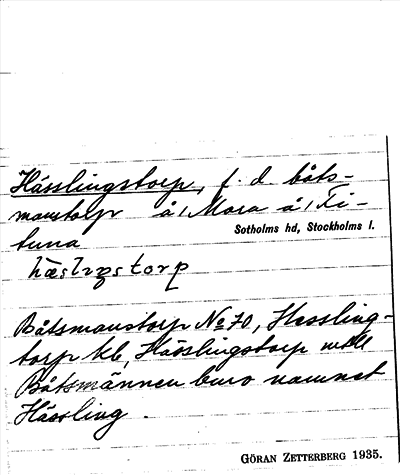 Hässlingstorp, f. d. båts-
manstorp å/ Mora å/ Fi-
tuna
Sotholms hd, Stockholms l.
hæslıŋstorp
Båtsmanstorp No 70, Hessling-
torp kb, Hässlingstorp
Båtsmännen buro namnet
Hässling.
GÖRAN ZETTERBERG 1935.